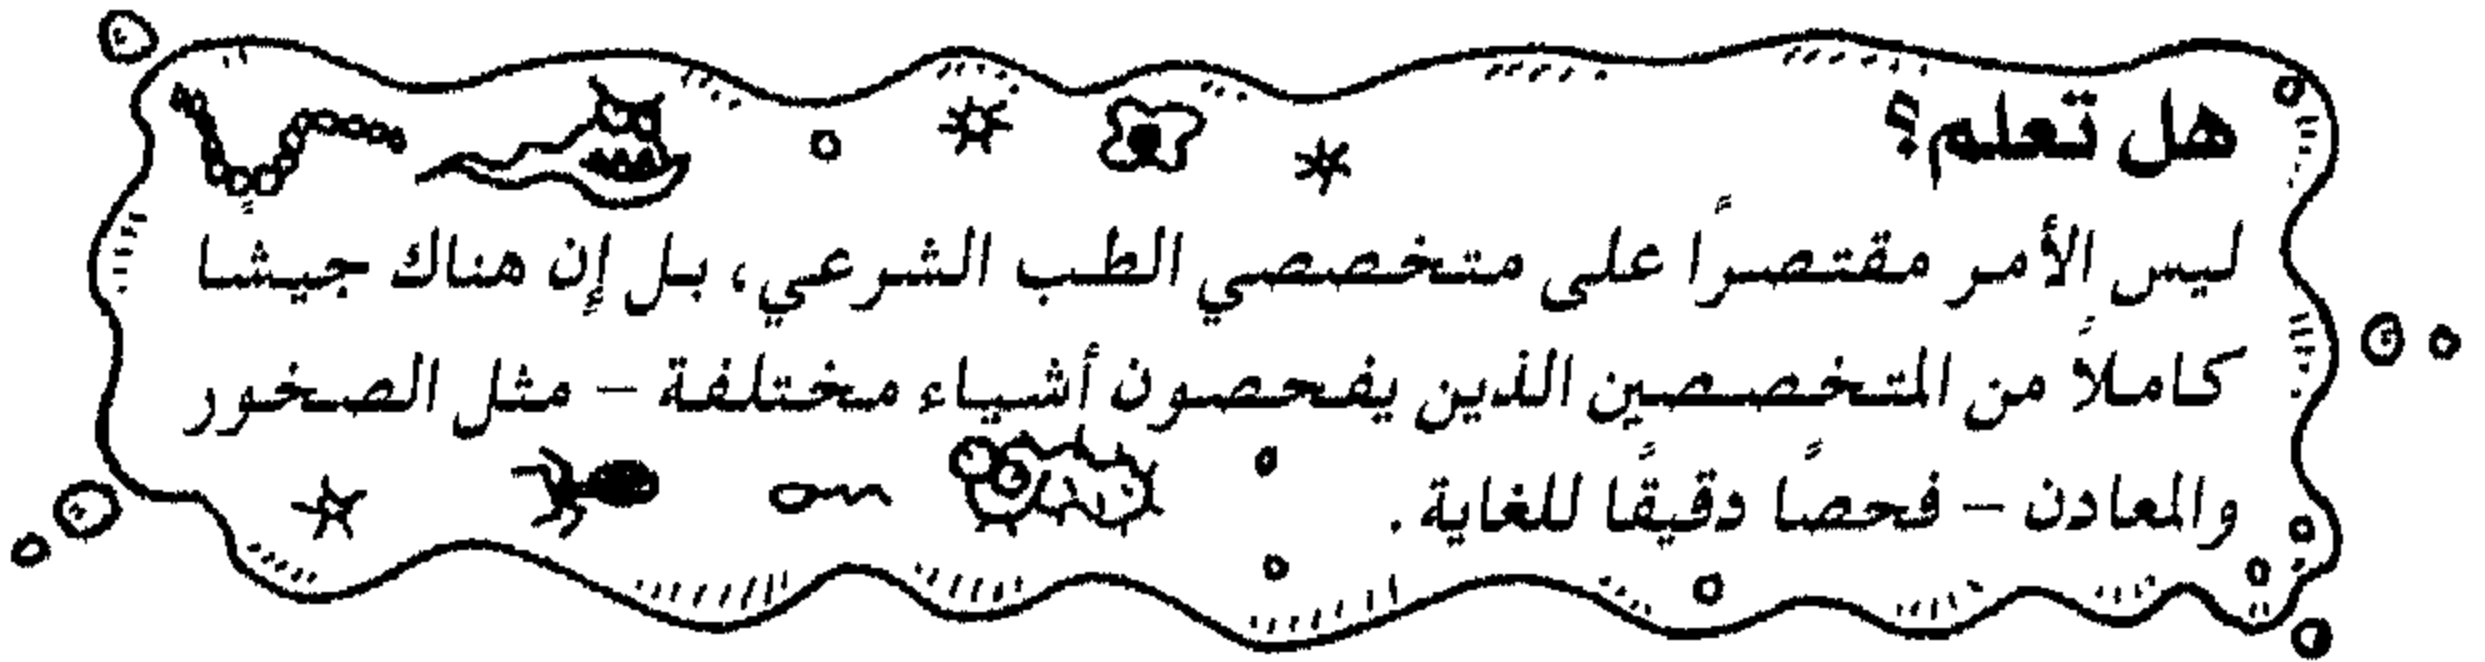 هل تعلم؟
ليس الأمر مقتصرًا على متخصصي الطب الشرعي، بل إن هناك جيشًا
كاملاً من المتخصصين الذين يفحصون أشياء مختلفة – مثل الصخور
والمعادن – فحصًا دقيقًا للغاية.